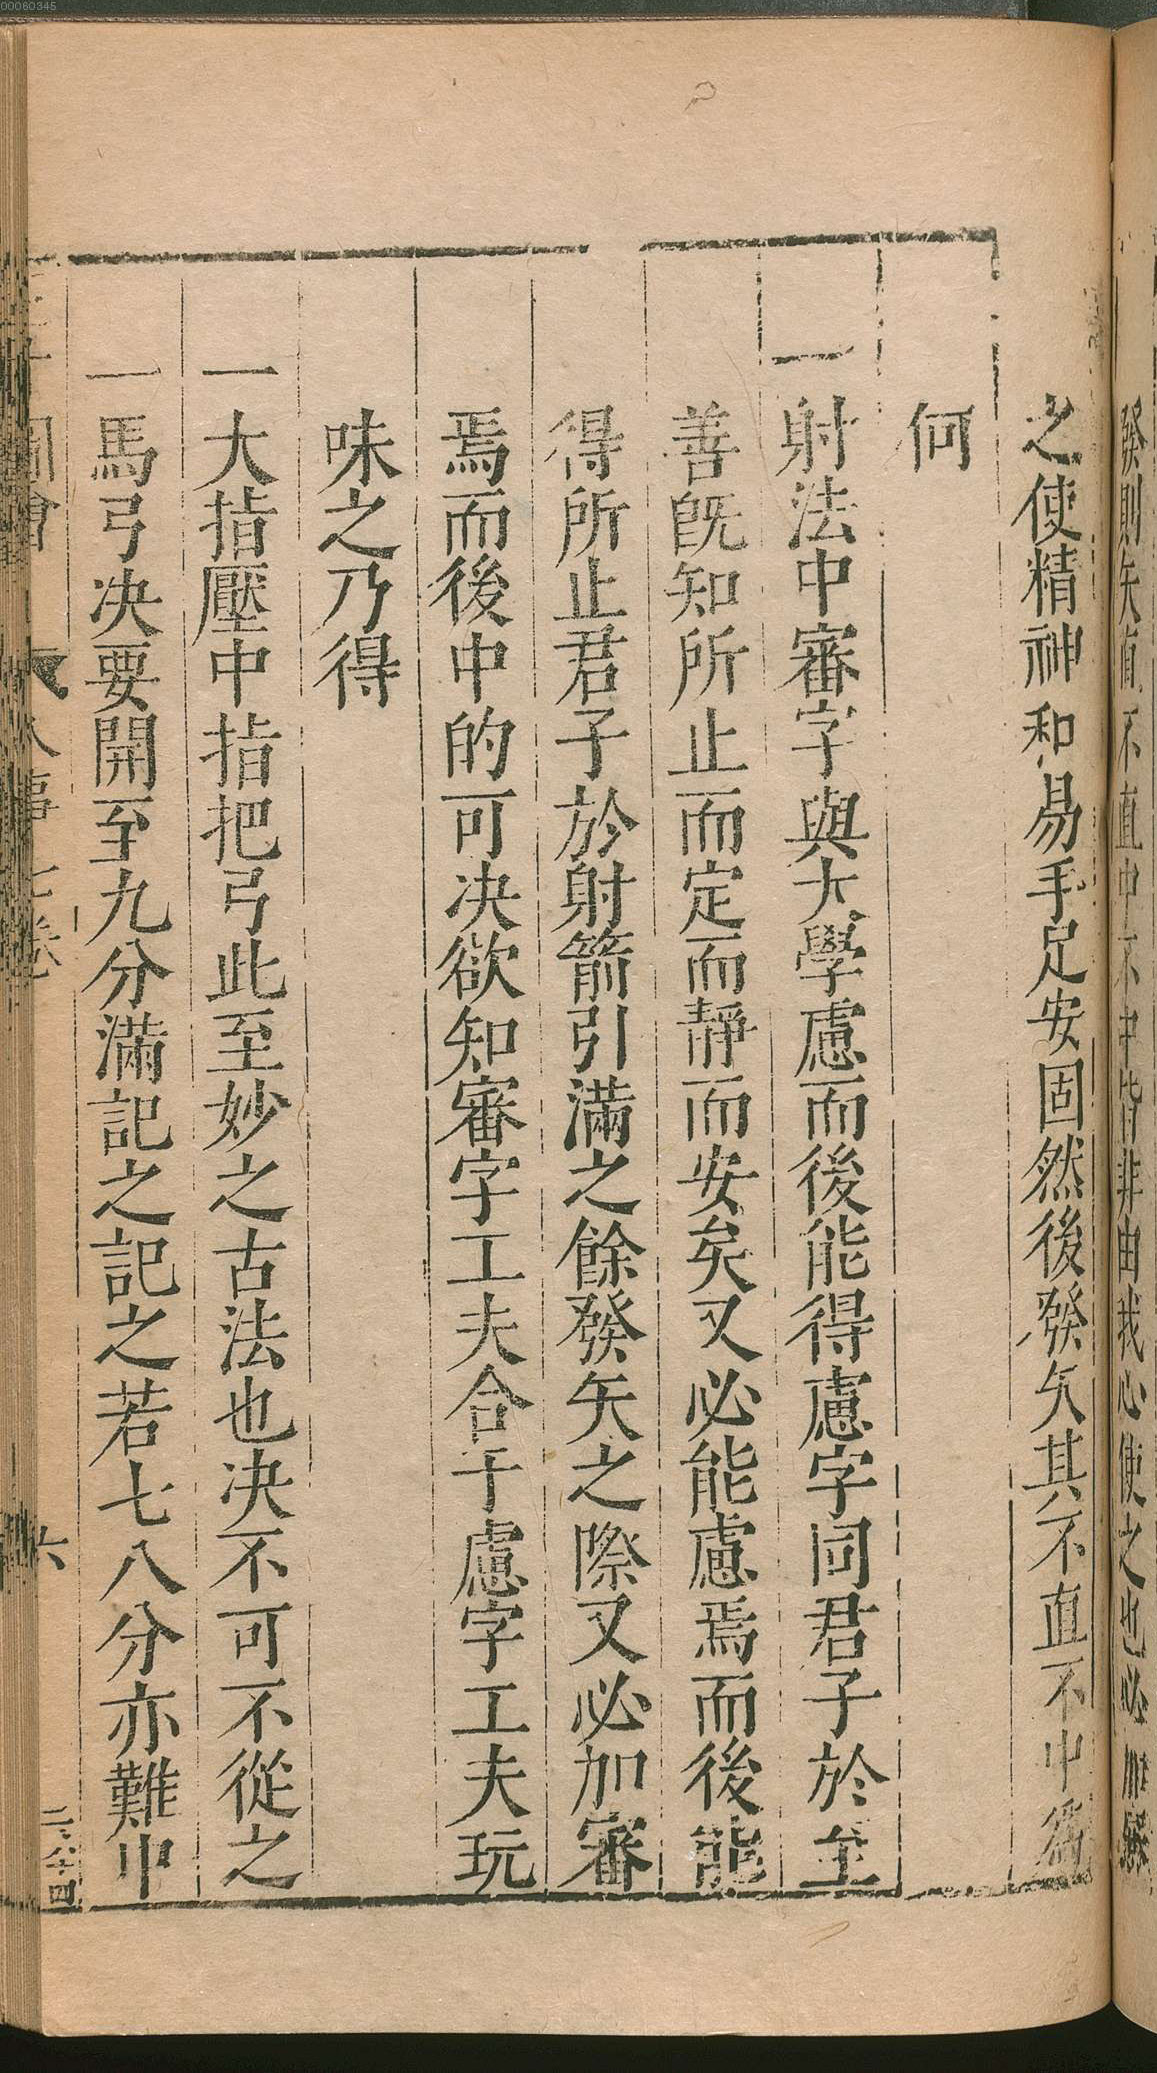 發則矢直不直中不中皆非由我心使之也必加
之使精神和易手足安固然後發矢其不直不中爲
何
一射法中審字與大學慮而後能得慮字同君子於至
善旣知所止而定而靜而安矣又必能慮焉而後能
得所止君子於射箭引滿之餘發矢之際又必加審
焉而後中的可决欲知審字工夫合于慮字工夫玩
味之乃得
一大指壓中指把弓此至妙之古法也决不可不從之
一馬弓决要開至九分滿記之記之若七八分亦難中
圖會 人事七卷 六
00060345